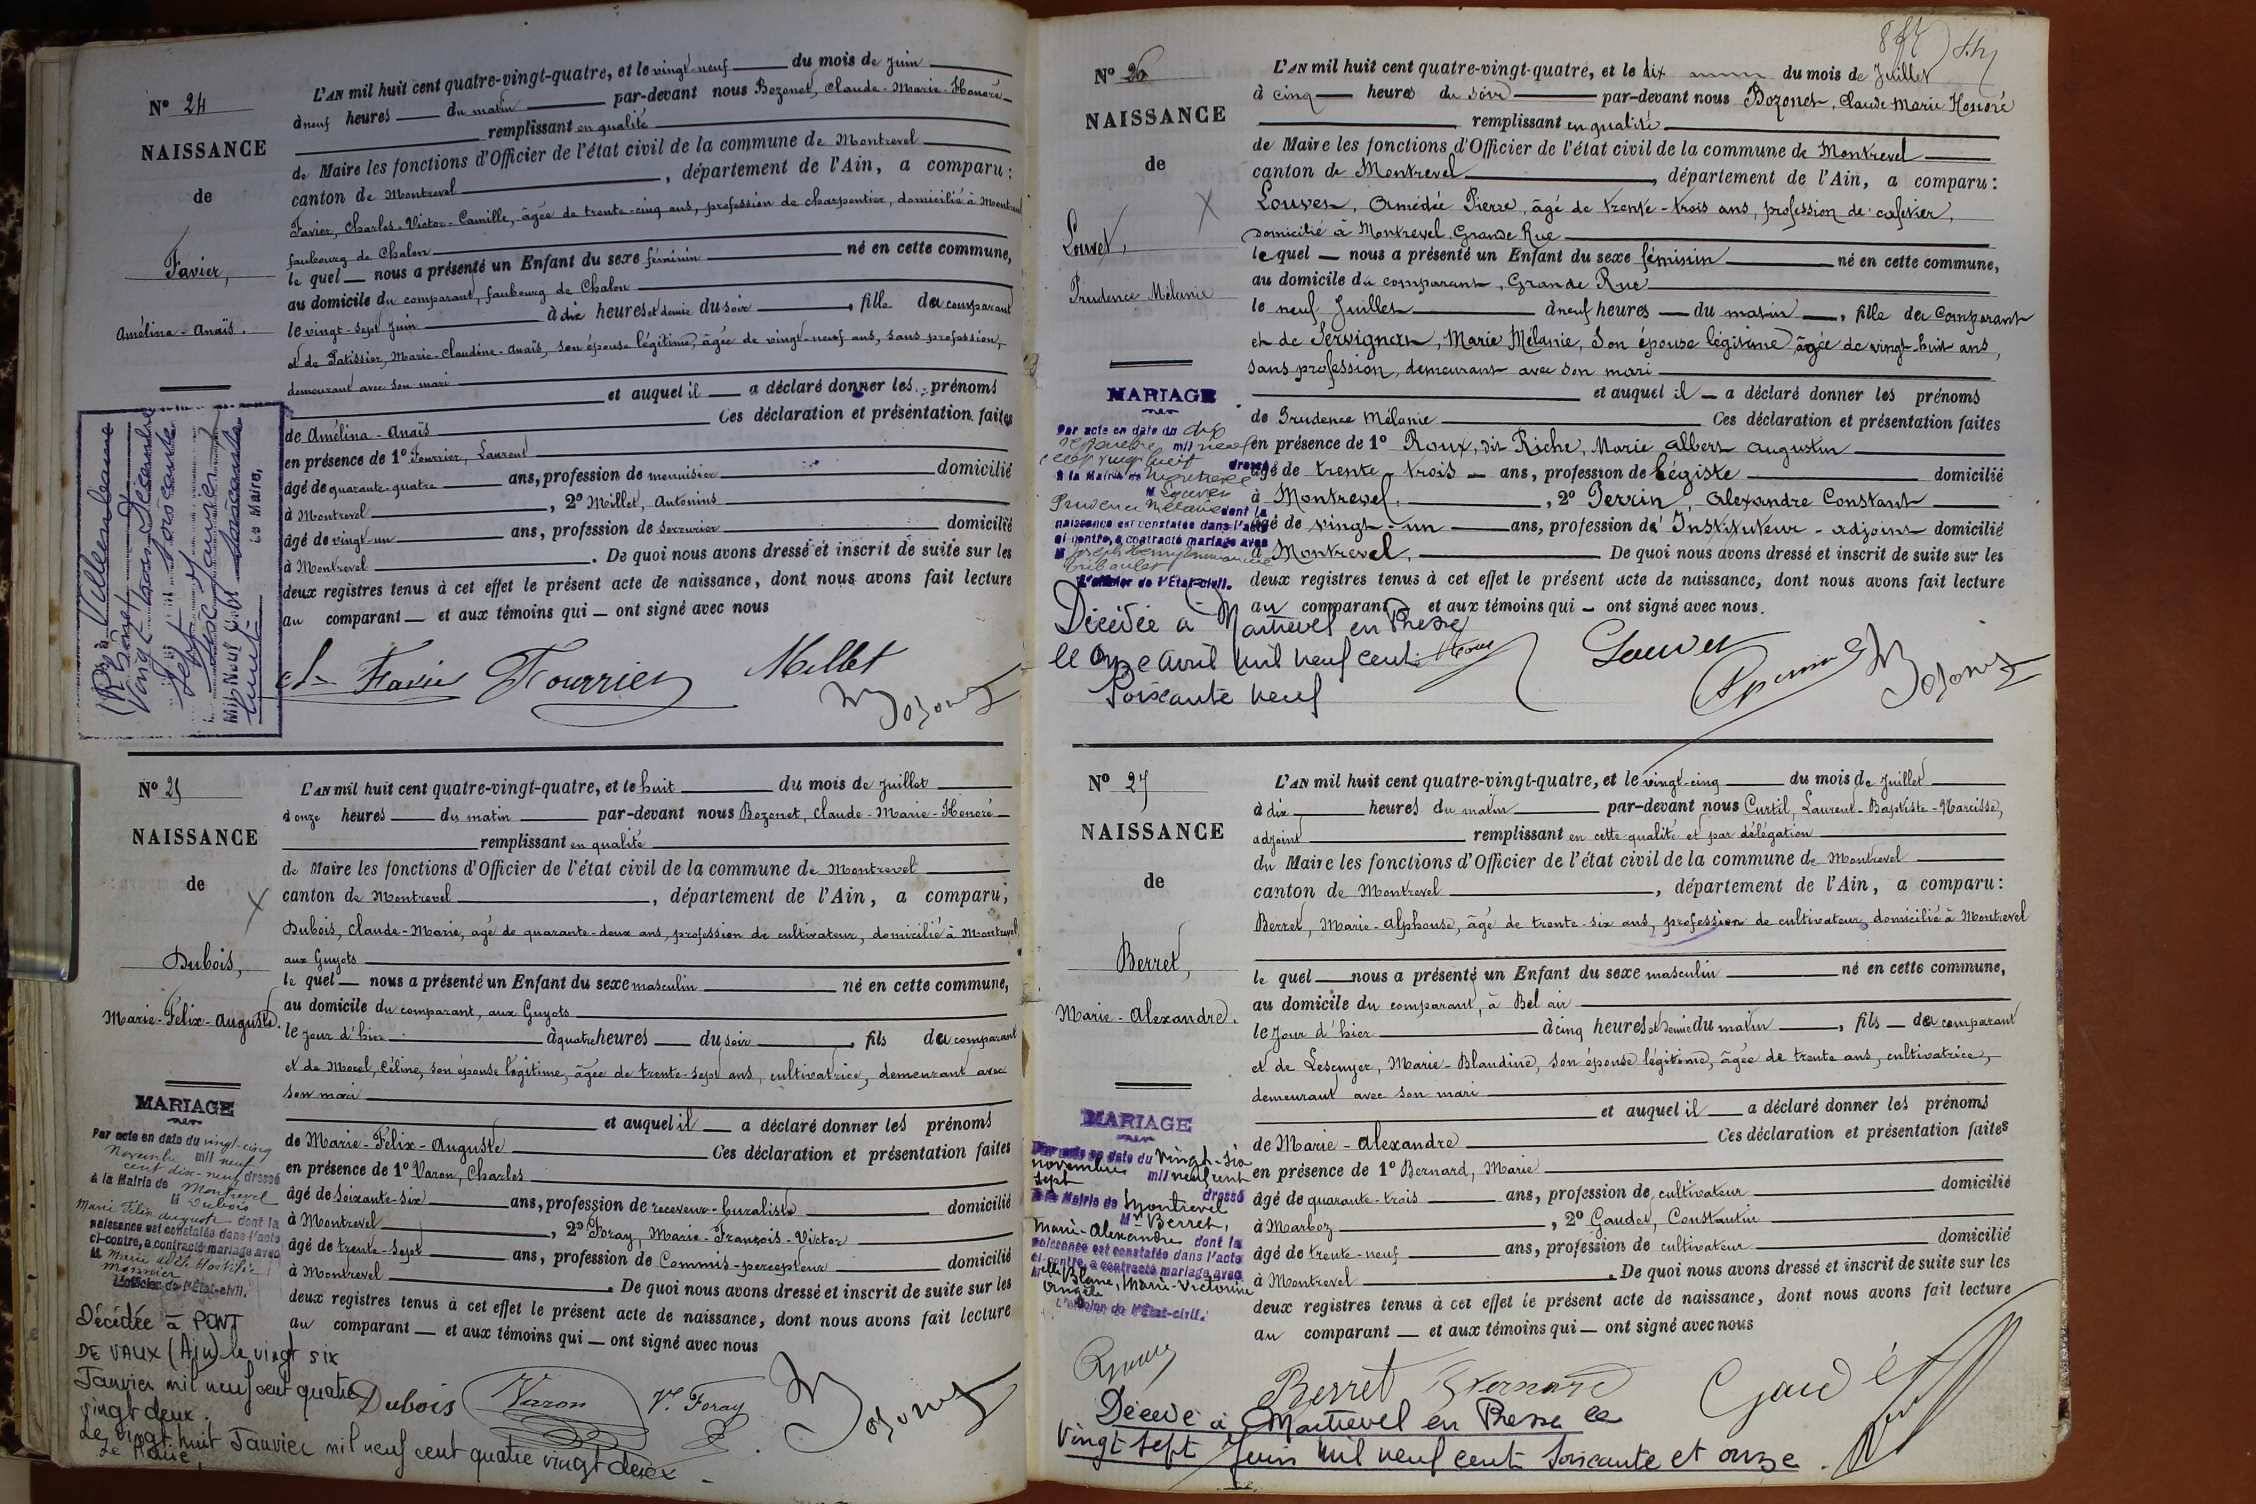 N° 24
NAISSANCE
de
Favier,
Amélina-Anaïs.
L'AN mil huit cent quatre-vingt-quatre, et le vingt-neuf du mois de Juin
à neuf heures du matin par-devant nous Bozonet, Claude-Marie-Honoré
remplissant en qualité
de Maire les fonctions d'Officier de l'état civil de la commune de Montrevel
canton de Montrevel, département de l'Ain, a comparu:
Favier, Charles-Victor-Camille, âgée de trente-cinq ans, profession de charpentier, domicilié à Montrevel
faubourg de Chalon
le quel nous a présenté un Enfant du sexe féminin né en cette commune,
au domicile du comparant, faubourg de Chalon
le vingt-sept Juin à dix heures et demie du soir, fille du comparant
et de Patissier, Marie-Claudine-Anaïs, son épouse légitime, âgée de vingt-neuf ans, sans profession,
demeurant avec son mari
et auquel il a déclaré donner les prénoms
de Amélina-Anaïs Ces déclaration et présentation faites
en présence de 1° Fourrier, Laurent
âgé de quarante-quatre ans, profession de menuisier domicilié
à Montrevel, 2° Millet, Antonins
âgé de vingt-un ans, profession de serrurier domicilié
à Montrevel. De quoi nous avons dressé et inscrit de suite sur les
deux registres tenus à cet effet le présent acte de naissance, dont nous avons fait lecture
au comparant et aux témoins qui ont signé avec nous
Villeurbanne
(Rhône)
Vingt trois Décembre
soixante
sept
six Janvier
Mil Neuf Cent soixante
huit
Le Maire,
Ch Favier Fourrier Millet
Bozonet
N° 25
NAISSANCE
de
Dubois,
Marie-Félix-Auguste.
L'AN mil huit cent quatre-vingt-quatre, et le huit du mois de Juillet
à onze heures du matin par-devant nous Bozonet, Claude-Marie-Honoré
remplissant en qualité
de Maire les fonctions d'Officier de l'état civil de la commune de Montrevel
canton de Montrevel, département de l'Ain, a comparu;
Dubois, Claude-Marie, âgé de quarante-deux ans, profession de cultivateur, domicilié à Montrevel,
aux Guyots
le quel nous a présenté un Enfant du sexe masculin né en cette commune,
au domicile du comparant, aux Guyots
le jour d'hier à quatre heures du soir, fils du comparant
et de Morel, Céline, son épouse légitime, âgée de trente-sept ans, cultivatrice, demeurant avec
son mari
et auquel il a déclaré donner les prénoms
de Marie-Félix-Auguste Ces déclaration et présentation faites
en présence de 1° Varon, Charles
âgé de soixante-six ans, profession de receveur-buraliste domicilié
à Montrevel, 2° Foray, Marie-François-Victor
âgé de trente-sept ans, profession de Commis-percepteur domicilié
à Montrevel. De quoi nous avons dressé et inscrit de suite sur les
deux registres tenus à cet effet le présent acte de naissance, dont nous avons fait lecture
au comparant et aux témoins qui ont signé avec nous
MARIAGE
Par acte en date du vingt-cinq
Novembre mil neuf
cent dix-neuf dressé
à la Mairie de Montrevel
M Dubois
Marie Félix Auguste dont la
naissance est constatée dans l'acte
ci-contre, a contracté mariage avec
M Marie
Monnier
L'officier de l'État-civil.
Décédée à PONT
DE VAUX (Ain) le vingt six
Janvier mil neuf cent quatre
vingt deux.
Le vingt huit Janvier mil neuf cent quatre vingt deux
Le Maire,
Dubois Varon Vr Foray Bozonet
N° 26
NAISSANCE
de
Louvet,
Prudence Mélanie
L'AN mil huit cent quatre-vingt-quatre, et le dix du mois de Juillet
à cinq heures du soir par-devant nous Bozonet, Claude Marie Honoré
remplissant en qualité
de Maire les fonctions d'Officier de l'état civil de la commune de Montrevel
canton de Montrevel, département de l'Ain, a comparu:
Louvet, Amédée Pierre, âgé de trente-trois ans, profession de cafetier,
domicilié à Montrevel, Grande Rue
le quel nous a présenté un Enfant du sexe féminin né en cette commune,
au domicile du comparant, Grande Rue
le neuf Juillet à neuf heures du matin, fille du comparant
et de Servignat, Marie Mélanie, Son épouse légitime, âgée de vingt-huit ans,
sans profession, demeurant avec son mari
et auquel il a déclaré donner les prénoms
de Prudence Mélanie Ces déclaration et présentation faites
en présence de 1° Roux, dit Riche, Marie Albert Augustin
âgé de trente-trois ans, profession de légiste domicilié
à Montrevel, 2° Perrin, Alexandre Constant
âgé de vingt-un ans, profession d'Instituteur-adjoint domicilié
à Montrevel. De quoi nous avons dressé et inscrit de suite sur les
deux registres tenus à cet effet le présent acte de naissance, dont nous avons fait lecture
au comparant et aux témoins qui ont signé avec nous.
MARIAGE
Par acte en date du dix
mil neuf
cent vingt huit dressé
à la Mairie de Montrevel
M Louvet
Prudence Mélanie dont la
naissance est constatée dans l'acte
ci-contre, a contracté mariage avec
M Joseph
L'officier de l'État-civil.
Décédée à Montrevel en Bresse
le onze avril mil neuf cent
soixante neuf
Roux Louvet Perrin Bozonet
N° 27
NAISSANCE
de
Berret,
Marie-Alexandre.
L'AN mil huit cent quatre-vingt-quatre, et le vingt-cinq du mois de Juillet
à dix heures du matin par-devant nous Curtil, Laurent-Baptiste-Narcisse,
adjoint remplissant en cette qualité et par délégation
du Maire les fonctions d'Officier de l'état civil de la commune de Montrevel
canton de Montrevel, département de l'Ain, a comparu:
Berret, Marie-Alphonse, âgé de trente-six ans, profession de cultivateur, domicilié à Montrevel
le quel nous a présenté un Enfant du sexe masculin né en cette commune,
au domicile du comparant, à Bel air
le jour d'hier à cinq heures et demie du matin, fils du comparant
et de Lescuyer, Marie-Blandine, son épouse légitime, âgée de trente ans, cultivatrice,
demeurant avec son mari
et auquel il a déclaré donner les prénoms
de Marie-Alexandre Ces déclaration et présentation faites
en présence de 1° Bernard, Marie
âgé de quarante-trois ans, profession de cultivateur domicilié
à Marboz, 2° Gaudet, Constantin
âgé de trente-neuf ans, profession de cultivateur domicilié
à Montrevel. De quoi nous avons dressé et inscrit de suite sur les
deux registres tenus à cet effet le présent acte de naissance, dont nous avons fait lecture
au comparant et aux témoins qui ont signé avec nous
MARIAGE
Par acte en date du Vingt-six
novembre mil neuf cent
sept dressé
à la Mairie de Montrevel
Mr Berret,
Marie-Alexandre dont la
naissance est constatée dans l'acte
ci-contre, a contracté mariage avec
Melle Blanc, Marie-Victorine
Angèle
L'officier de l'État-civil.
Berret Bernard Gaudet
Décédé à Montrevel en Bresse le
Vingt sept Juin mil neuf cent soixante et onze.